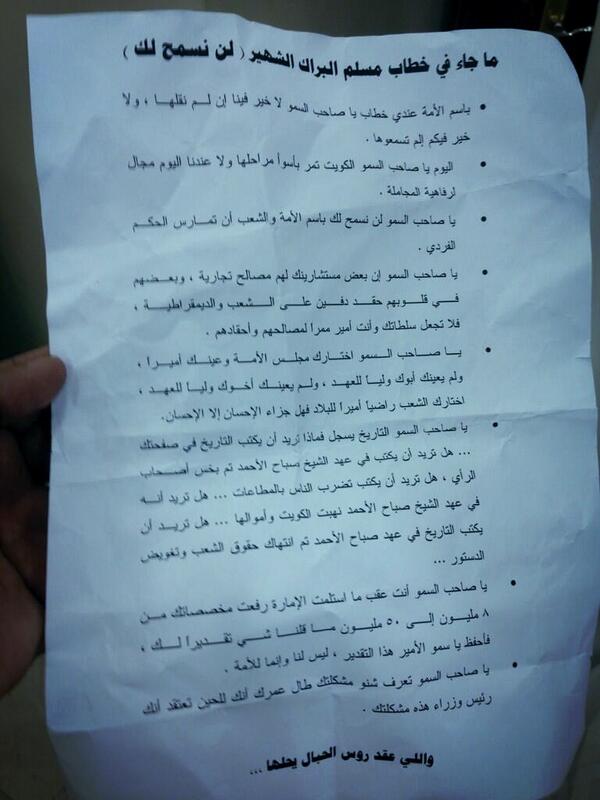 ما جاء في خطاب مسلم البراك الشهير ( لن نسمح لك )
• باسم الأمة عندي خطاب يا صاحب السمو لا خير فينا إن لم نقلها ، ولا
خير فيكم إلم تسمعوها .
• اليوم يا صاحب السمو الكويت تمر بأسوأ مراحلها ولا عندنا اليوم مجال
لرفاهية المجاملة .
• يا صاحب السمو لن نسمح لك باسم الأمة والشعب أن تمارس الحكم
الفردي .
• يا صاحب السمو إن بعض مستشارينك لهم مصالح تجارية ، وبعضهم
في قلوبهم حقد دفين على الشعب والديمقراطية ،
فلا تجعل سلطاتك وأنت أمير ممراً لمصالحهم وأحقادهم .
• يا صاحب السمو اختارك مجلس الأمة وعينك أميراً ،
ولم يعينك أبوك ولياً للعهد ، ولم يعينك أخوك ولياً للعهد ،
اختارك الشعب راضياً أميراً للبلاد فهل جزاء الإحسان إلا الإحسان.
• يا صاحب السمو التاريخ يسجل فماذا تريد أن يكتب التاريخ في صفحتك
... هل تريد أن يكتب في عهد الشيخ صباح الأحمد تم بخس أصحاب
الرأي ، هل تريد أن يكتب تضرب الناس بالمطاعات ... هل تريد أنه
في عهد الشيخ صباح الأحمد نهبت الكويت وأموالها ... هل تريد أن
يكتب التاريخ في عهد صباح الأحمد تم انتهاك حقوق الشعب وتغويض
الدستور ...
• يا صاحب السمو أنت عقب ما استلمت الإمارة رفعت مخصصاتك من
٨ مليون إلى ٥٠ مليون ما قلنا شي تقديراً لك ،
فأحفظ يا سمو الأمير هذا التقدير ، ليس لنا وإنما للأمة .
• يا صاحب السمو تعرف شنو مشكلتك طال عمرك أنك للحين تعتقد أنك
رئيس وزراء هذه مشكلتك .
واللي عقد روس الحبال يحلها ...